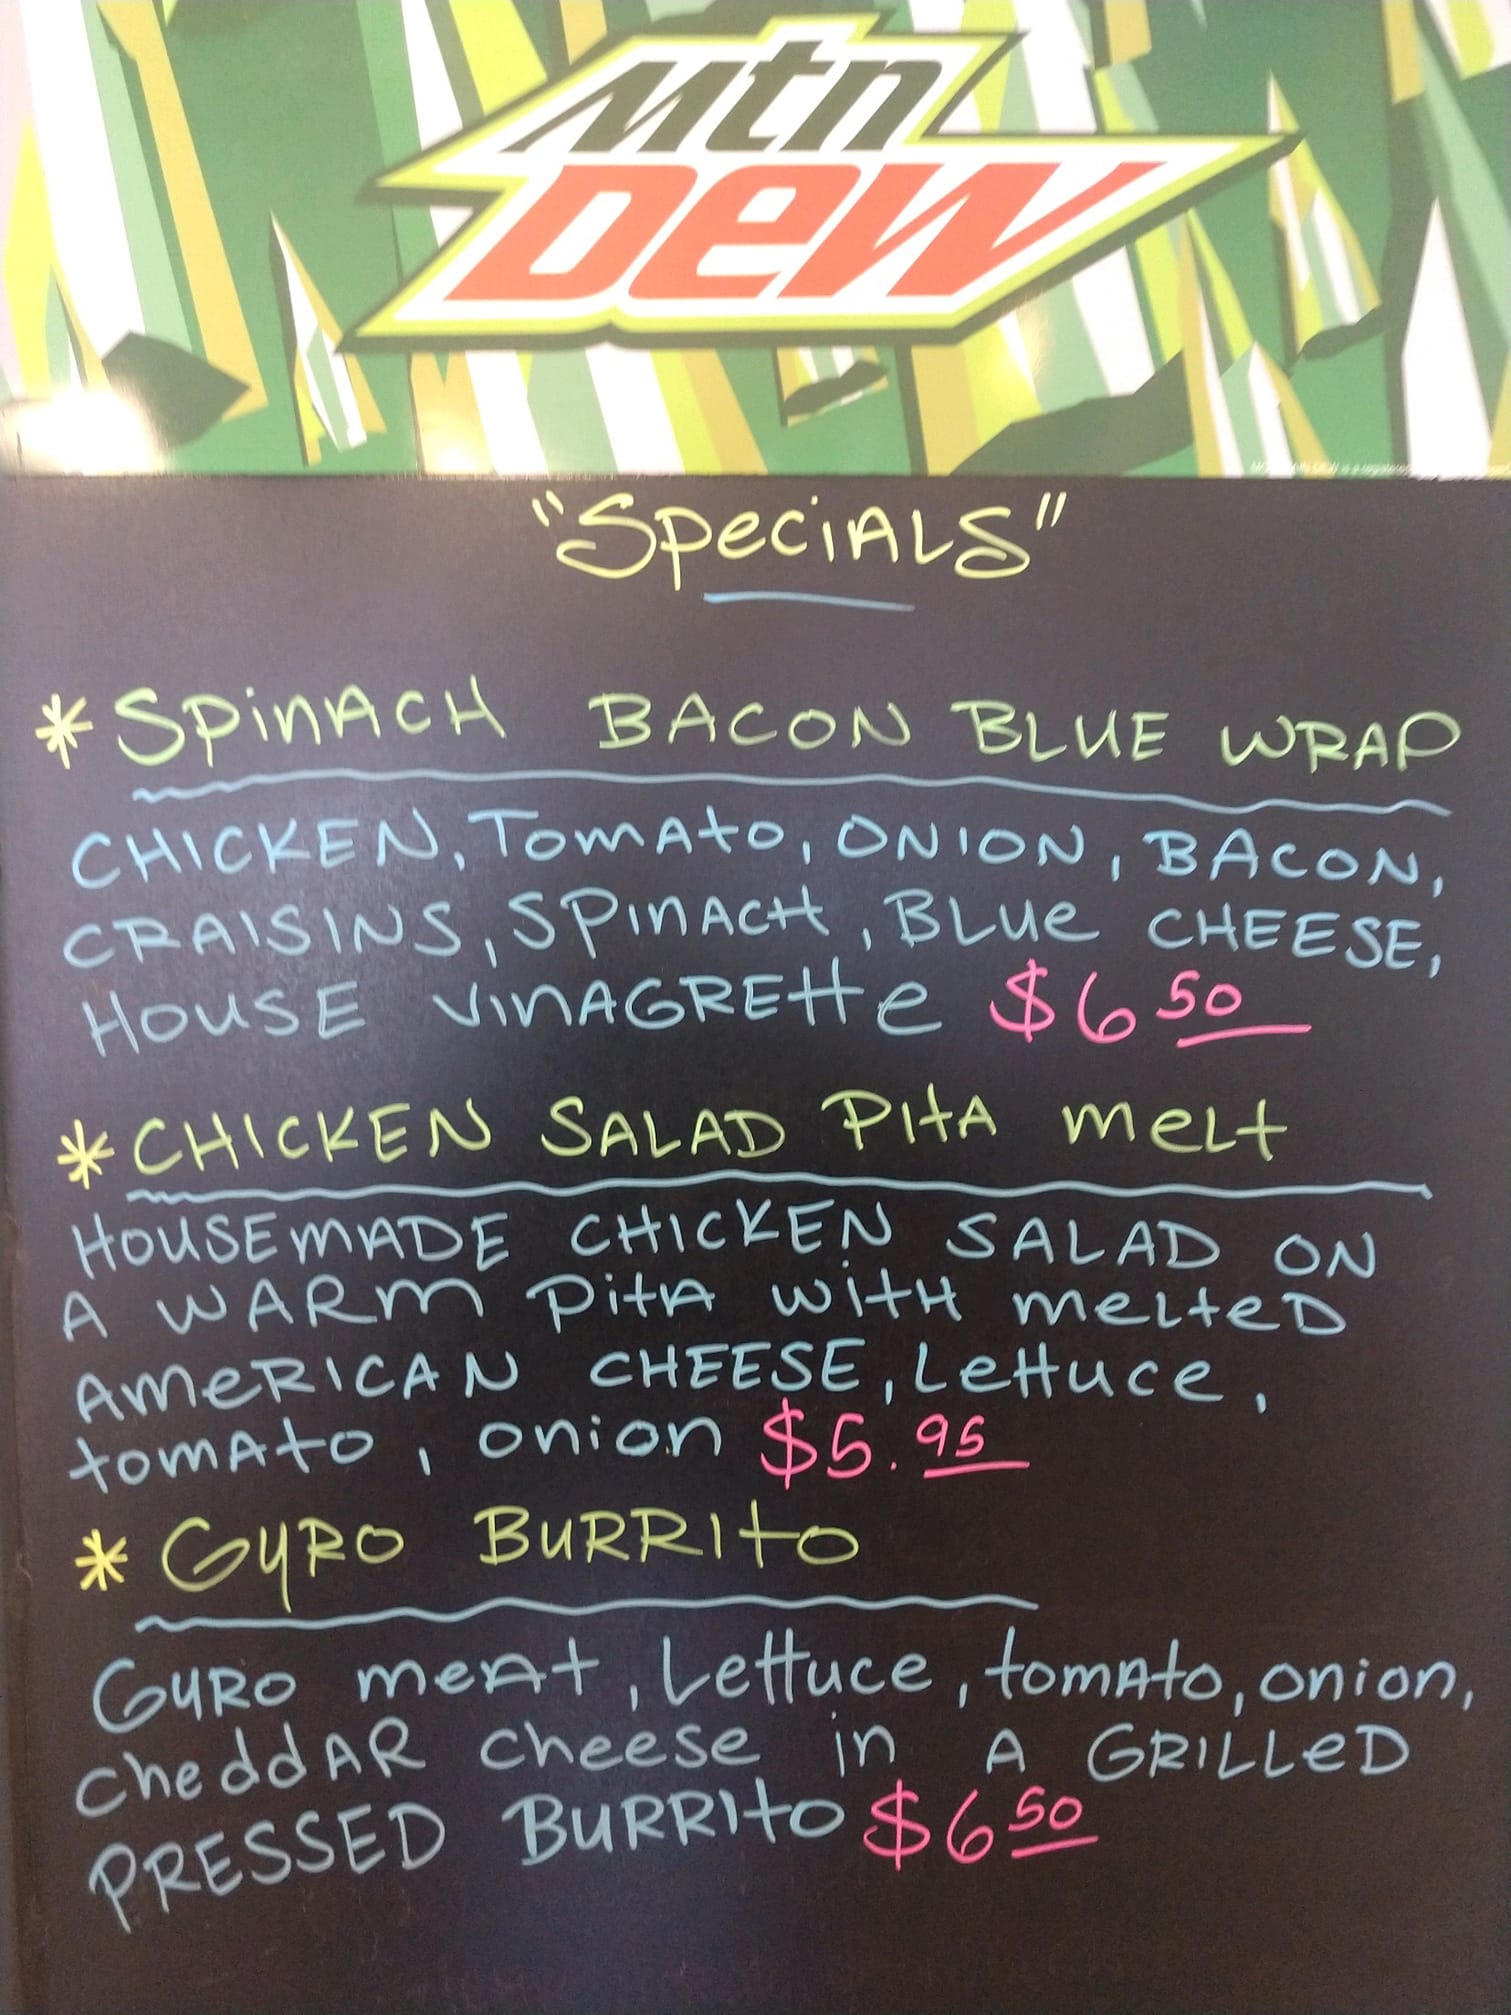 Mtn
DEW
"SPeciALS"
* SPinACH BACON BLUE WRAP
CHICKEN, TomAto, ONION, BACON,
CRAISINS, SPinACH, BLue CHEESE,
HOUSE VinAGREtte $6 50
* CHICKEN SALAD PitA meLt
HOUSEmADE CHICKEN SALAD ON
A WARm PitA WitH meLteD
AmeRICAN CHEESE, Lettuce,
tomAto, onion $5.95
* GYRO BuRRito
GYRO meAt, Lettuce, tomAto, onion,
cheddAR cheese in A GRILLeD
PRESSED BuRRito $6 50